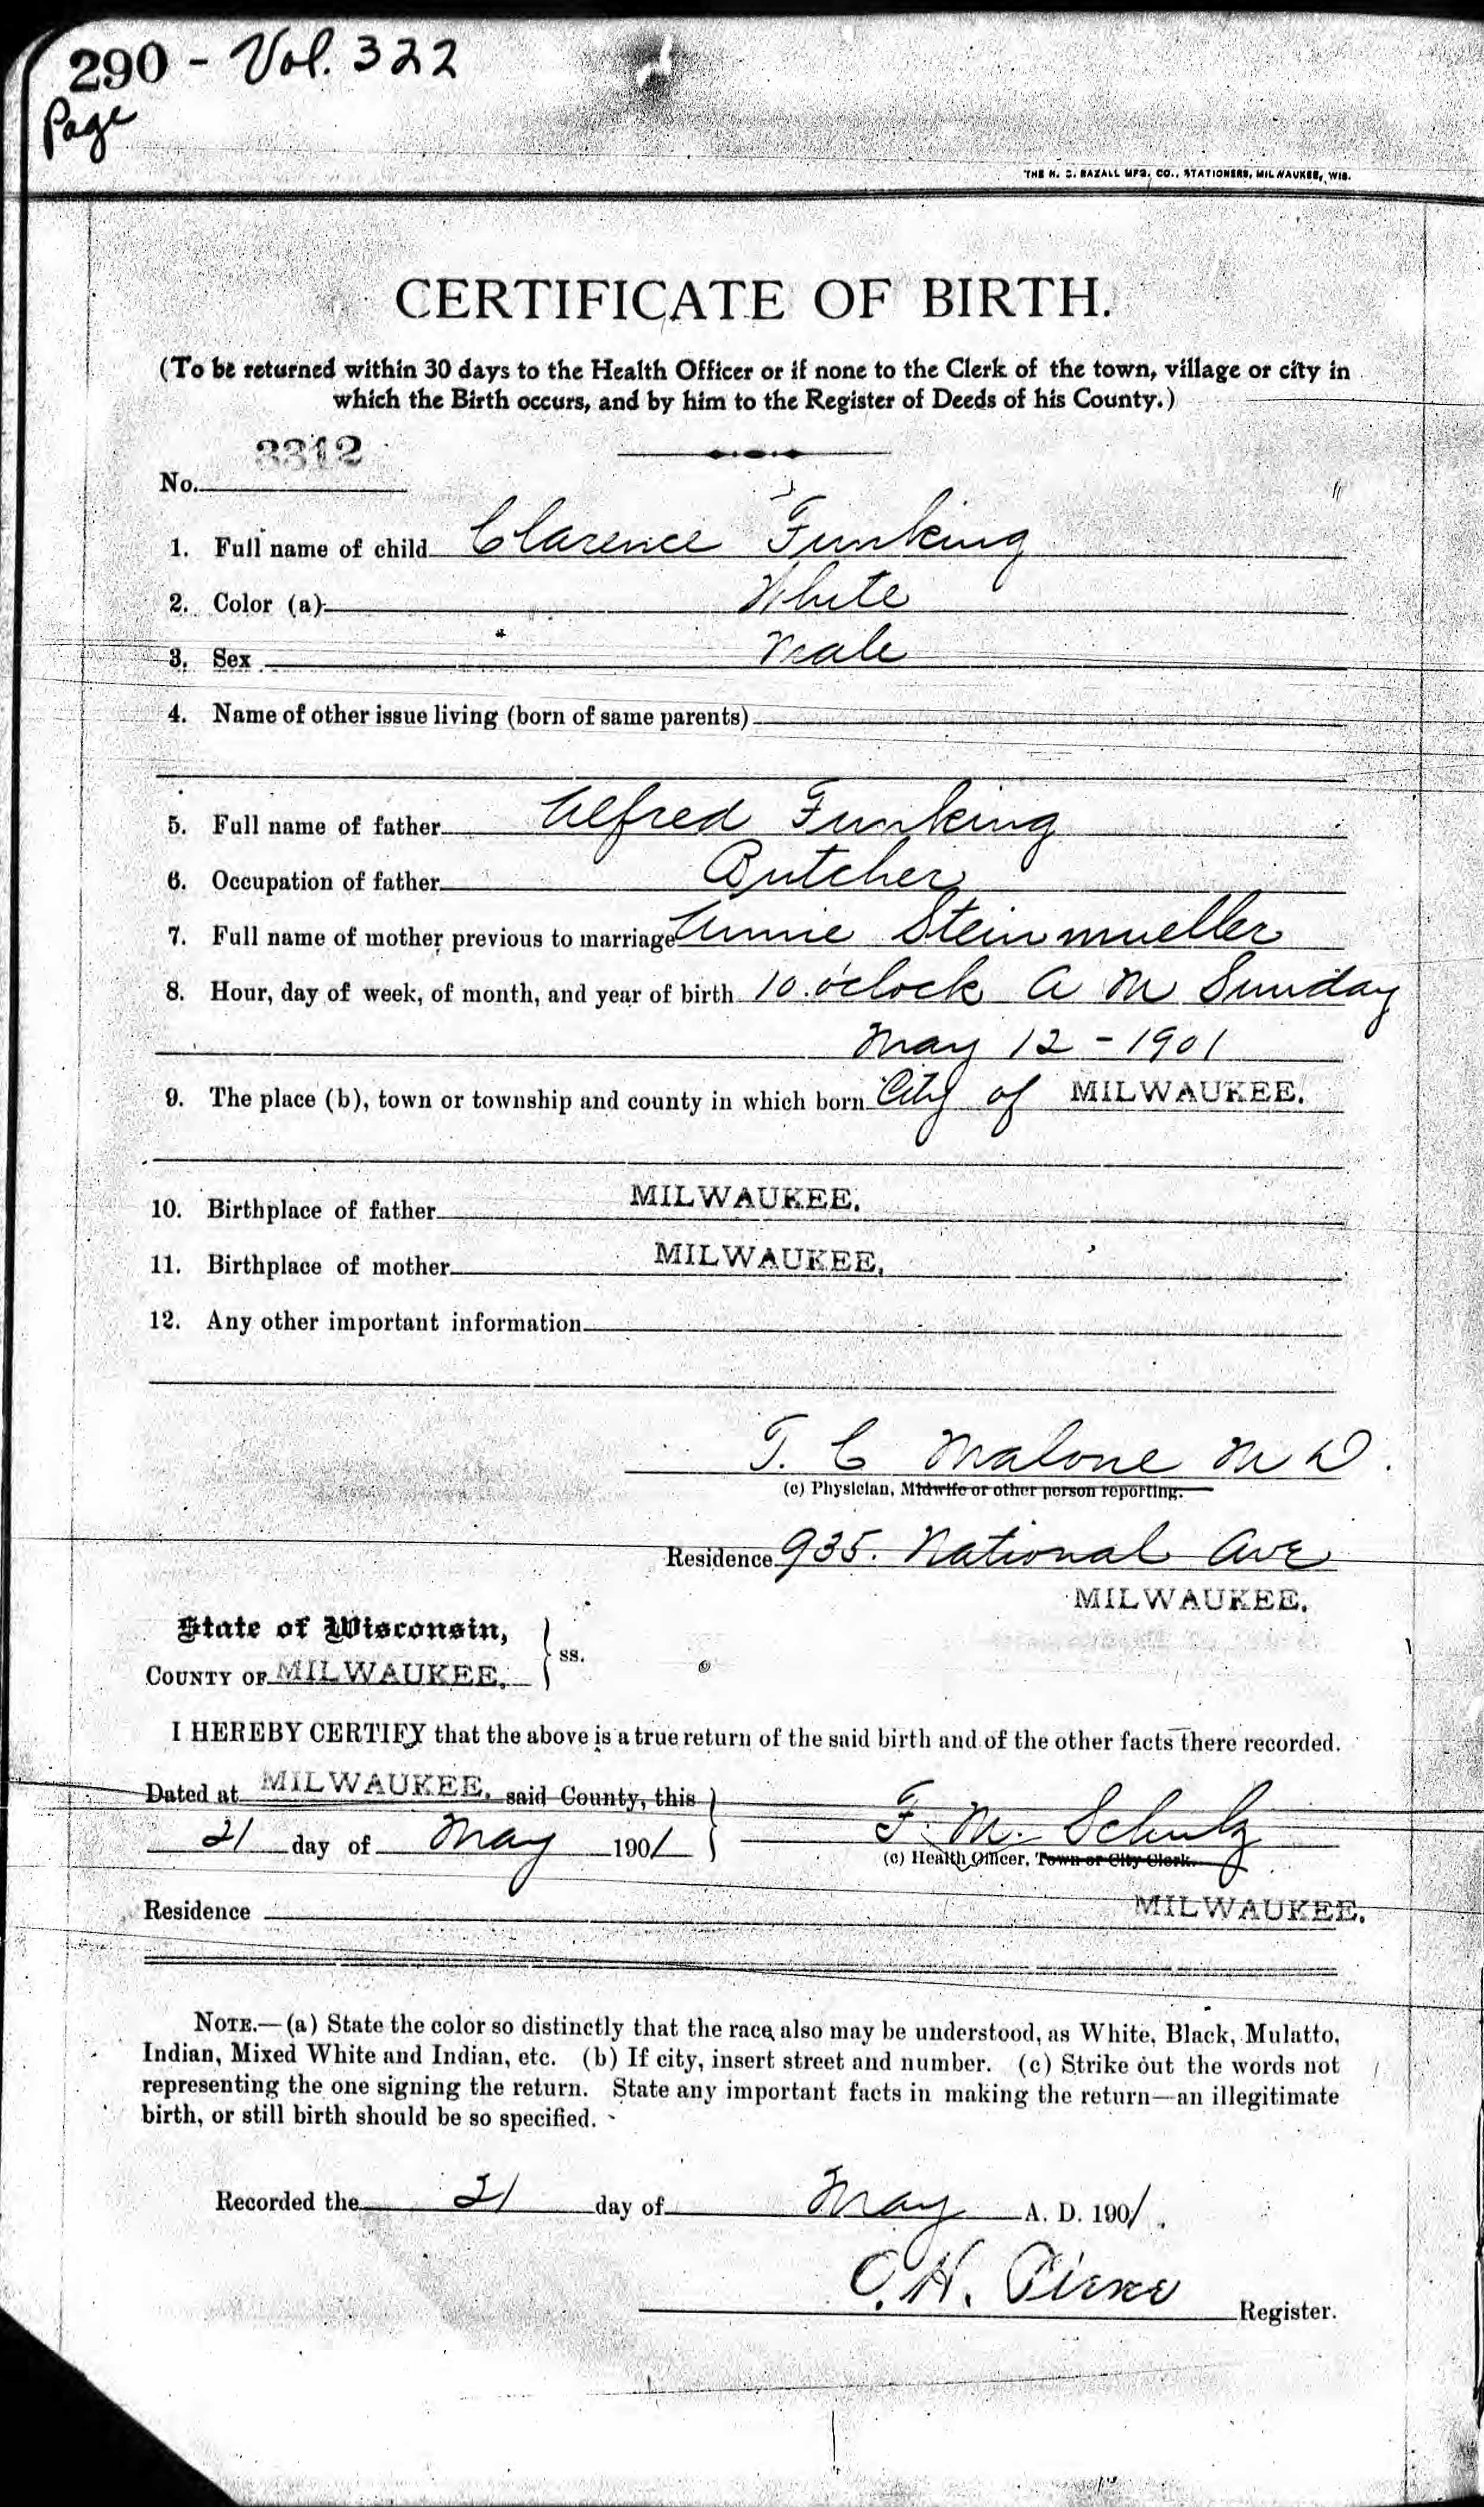 290 - Vol. 322
Page
THE H. S. RAZALL MFG. CO., STATIONERS, MILWAUKEE, WIS.
CERTIFICATE OF BIRTH.
(To be returned within 30 days to the Health Officer or if none to the Clerk of the town, village or city in
which the Birth occurs, and by him to the Register of Deeds of his County.)
No. 3312
1. Full name of child Clarence Funking
2. Color (a) White
3. Sex Male
4. Name of other issue living (born of same parents)
5. Full name of father Alfred Funking
6. Occupation of father Butcher
7. Full name of mother previous to marriage Annie Steinmueller
8. Hour, day of week, of month, and year of birth 10. o'clock A M Sunday
May 12 - 1901
9. The place (b), town or township and county in which born City of MILWAUKEE.
10. Birthplace of father MILWAUKEE.
11. Birthplace of mother MILWAUKEE.
12. Any other important information
T. C Malone M D.
(c) Physician, Midwife or other person reporting.
Residence 935. National Ave
MILWAUKEE.
State of Wisconsin,
COUNTY OF MILWAUKEE. } ss.
I HEREBY CERTIFY that the above is a true return of the said birth and of the other facts there recorded.
Dated at MILWAUKEE, said County, this
21 day of May 1901 } F. M. Schulz
(c) Health Officer, Town or City Clerk.
Residence MILWAUKEE.
NOTE.—(a) State the color so distinctly that the race also may be understood, as White, Black, Mulatto,
Indian, Mixed White and Indian, etc. (b) If city, insert street and number. (c) Strike out the words not
representing the one signing the return. State any important facts in making the return—an illegitimate
birth, or still birth should be so specified.
Recorded the 21 day of May A. D. 1901.
C. H. Pierce
Register.